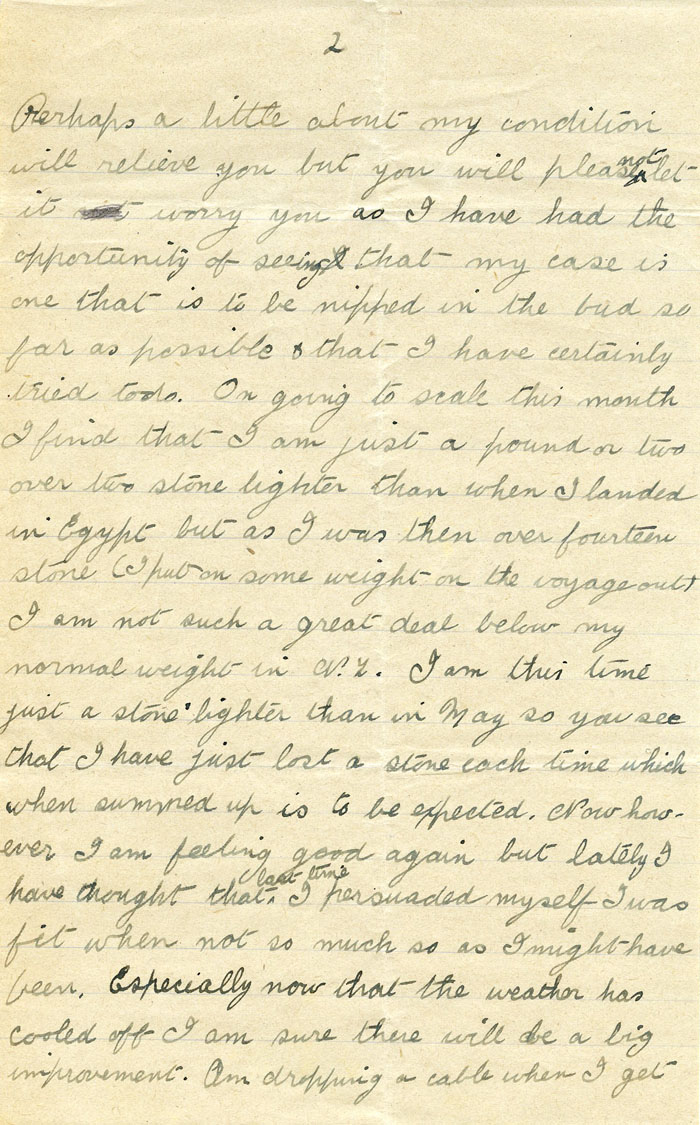 2
Perhaps a little about my condition
will relieve you but you will please not let
it worry you as I have had the
opportunity of seeing that my case is
one that is to be nipped in the bud so
far as possible & that I have certainly
tried todo. On going to scale this month
I find that I am just a pound or two
over two stone lighter than when I landed
in Egypt but as I was then over fourteen
stone (I put on some weight on the voyage out)
I am not such a great deal below my
normal weight in N.Z. I am this time
just a stone lighter than in May so you see
that I have just lost a stone each time which
when summed up is to be expected. Now how-
ever I am feeling good again but lately I
have thought that last time I persuaded myself I was
fit when not so much so as I might have
been. Especially now that the weather has
cooled off I am sure there will be a big
improvement. Am dropping a cable when I get